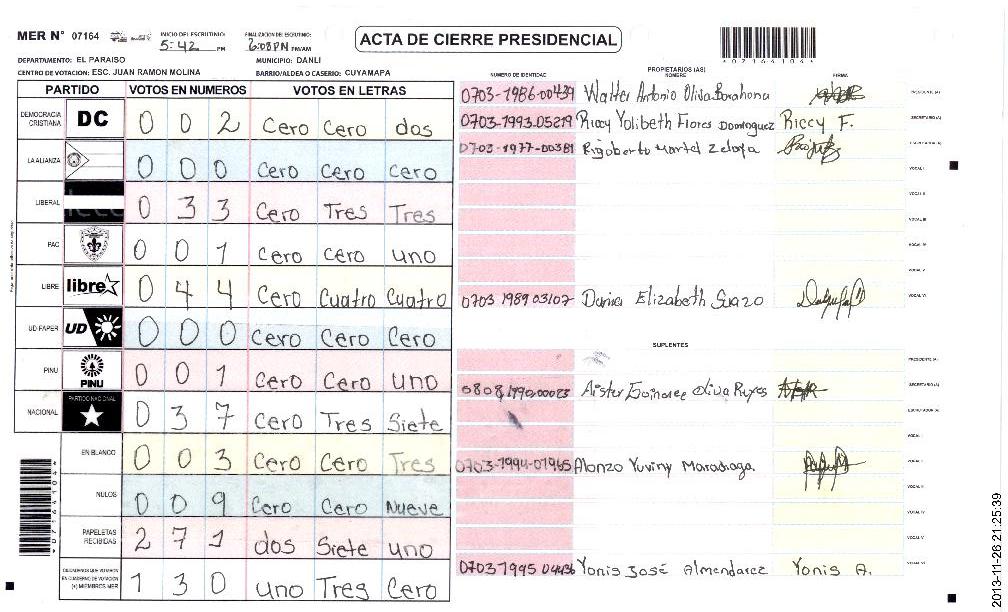 MER N° 07164
INICIO DEL ESCRUTINIO: 5:42 PM
FINALIZACION DEL ESCRUTINIO: 6:08PM PM/AM
ACTA DE CIERRE PRESIDENCIAL
*0716410 4*
DEPARTAMENTO: EL PARAISO
MUNICIPIO: DANLI
CENTRO DE VOTACION: ESC. JUAN RAMON MOLINA
BARRIO/ALDEA O CASERIO: CUYAMAPA
PARTIDO VOTOS EN NUMEROS VOTOS EN LETRAS
DEMOCRACIA CRISTIANA DC 0 0 2 Cero Cero dos
LA ALIANZA 0 0 0 Cero Cero Cero
LIBERAL 0 3 3 Cero Tres Tres
PAC 0 0 1 Cero Cero uno
LIBRE libre 0 4 4 Cero Cuatro Cuatro
UD FAPER UD 0 0 0 Cero Cero Cero
PINU PINU 0 0 1 Cero Cero uno
NACIONAL PARTIDO NACIONAL 0 3 7 Cero Tres Siete
EN BLANCO 0 0 3 Cero Cero Tres
NULOS 0 0 9 Cero Cero Nueve
PAPELETAS RECIBIDAS 2 7 1 dos Siete uno
CIUDADANOS QUE VOTARON EN CUADERNO DE VOTACION (+) MIEMBROS MER 1 3 0 uno Tres Cero
PROPIETARIOS (AS)
NUMERO DE IDENTIDAD NOMBRE FIRMA
0703-1986-00439 Walter Antonio Oliva Barahona PRESIDENTE (A)
0703-1993-05219 Riccy Yolibeth Flores Dominguez Riccy F. SECRETARIO (A)
0703-1977-00381 Rigoberto Montel Zelaya ESCRUTADOR (A)
VOCAL I
VOCAL II
VOCAL III
VOCAL IV
VOCAL V
0703 1989 03107 Elizabeth Suazo VOCAL VI
SUPLENTES
PRESIDENTE (A)
0808 1990 00023 Oliva Reyes SECRETARIO (A)
ESCRUTADOR (A)
VOCAL I
0703-1994-01965 Alonzo Yuviny Maradiaga VOCAL II
VOCAL III
VOCAL IV
VOCAL V
0703 1995 04436 Yonis José Almendarez Yonis A. VOCAL VI
2013-11-26 21:25:39